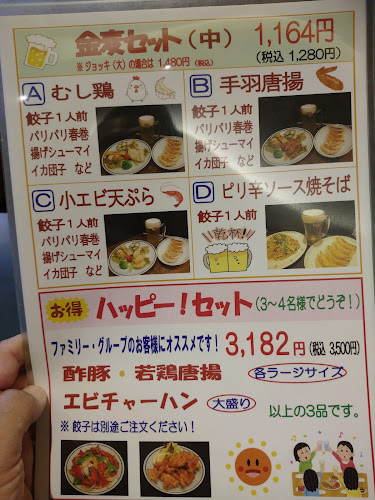 金麦セット（中） 1,164円
※ ジョッキ（大）の場合は 1,480円（税込） （税込 1,280円）
A むし鶏
餃子１人前
パリパリ春巻
揚げシューマイ
イカ団子 など
B 手羽唐揚
餃子１人前
パリパリ春巻
揚げシューマイ
イカ団子 など
C 小エビ天ぷら
餃子１人前
パリパリ春巻
揚げシューマイ
イカ団子 など
D ピリ辛ソース焼そば
餃子１人前
乾杯!
お得 ハッピー！セット（３～４名様でどうぞ！）
ファミリー・グループのお客様にオススメです！ 3,182円（税込 3,500円）
酢豚・若鶏唐揚 各ラージサイズ
エビチャーハン 大盛り 以上の３品です。
※ 餃子は別途ご注文ください！